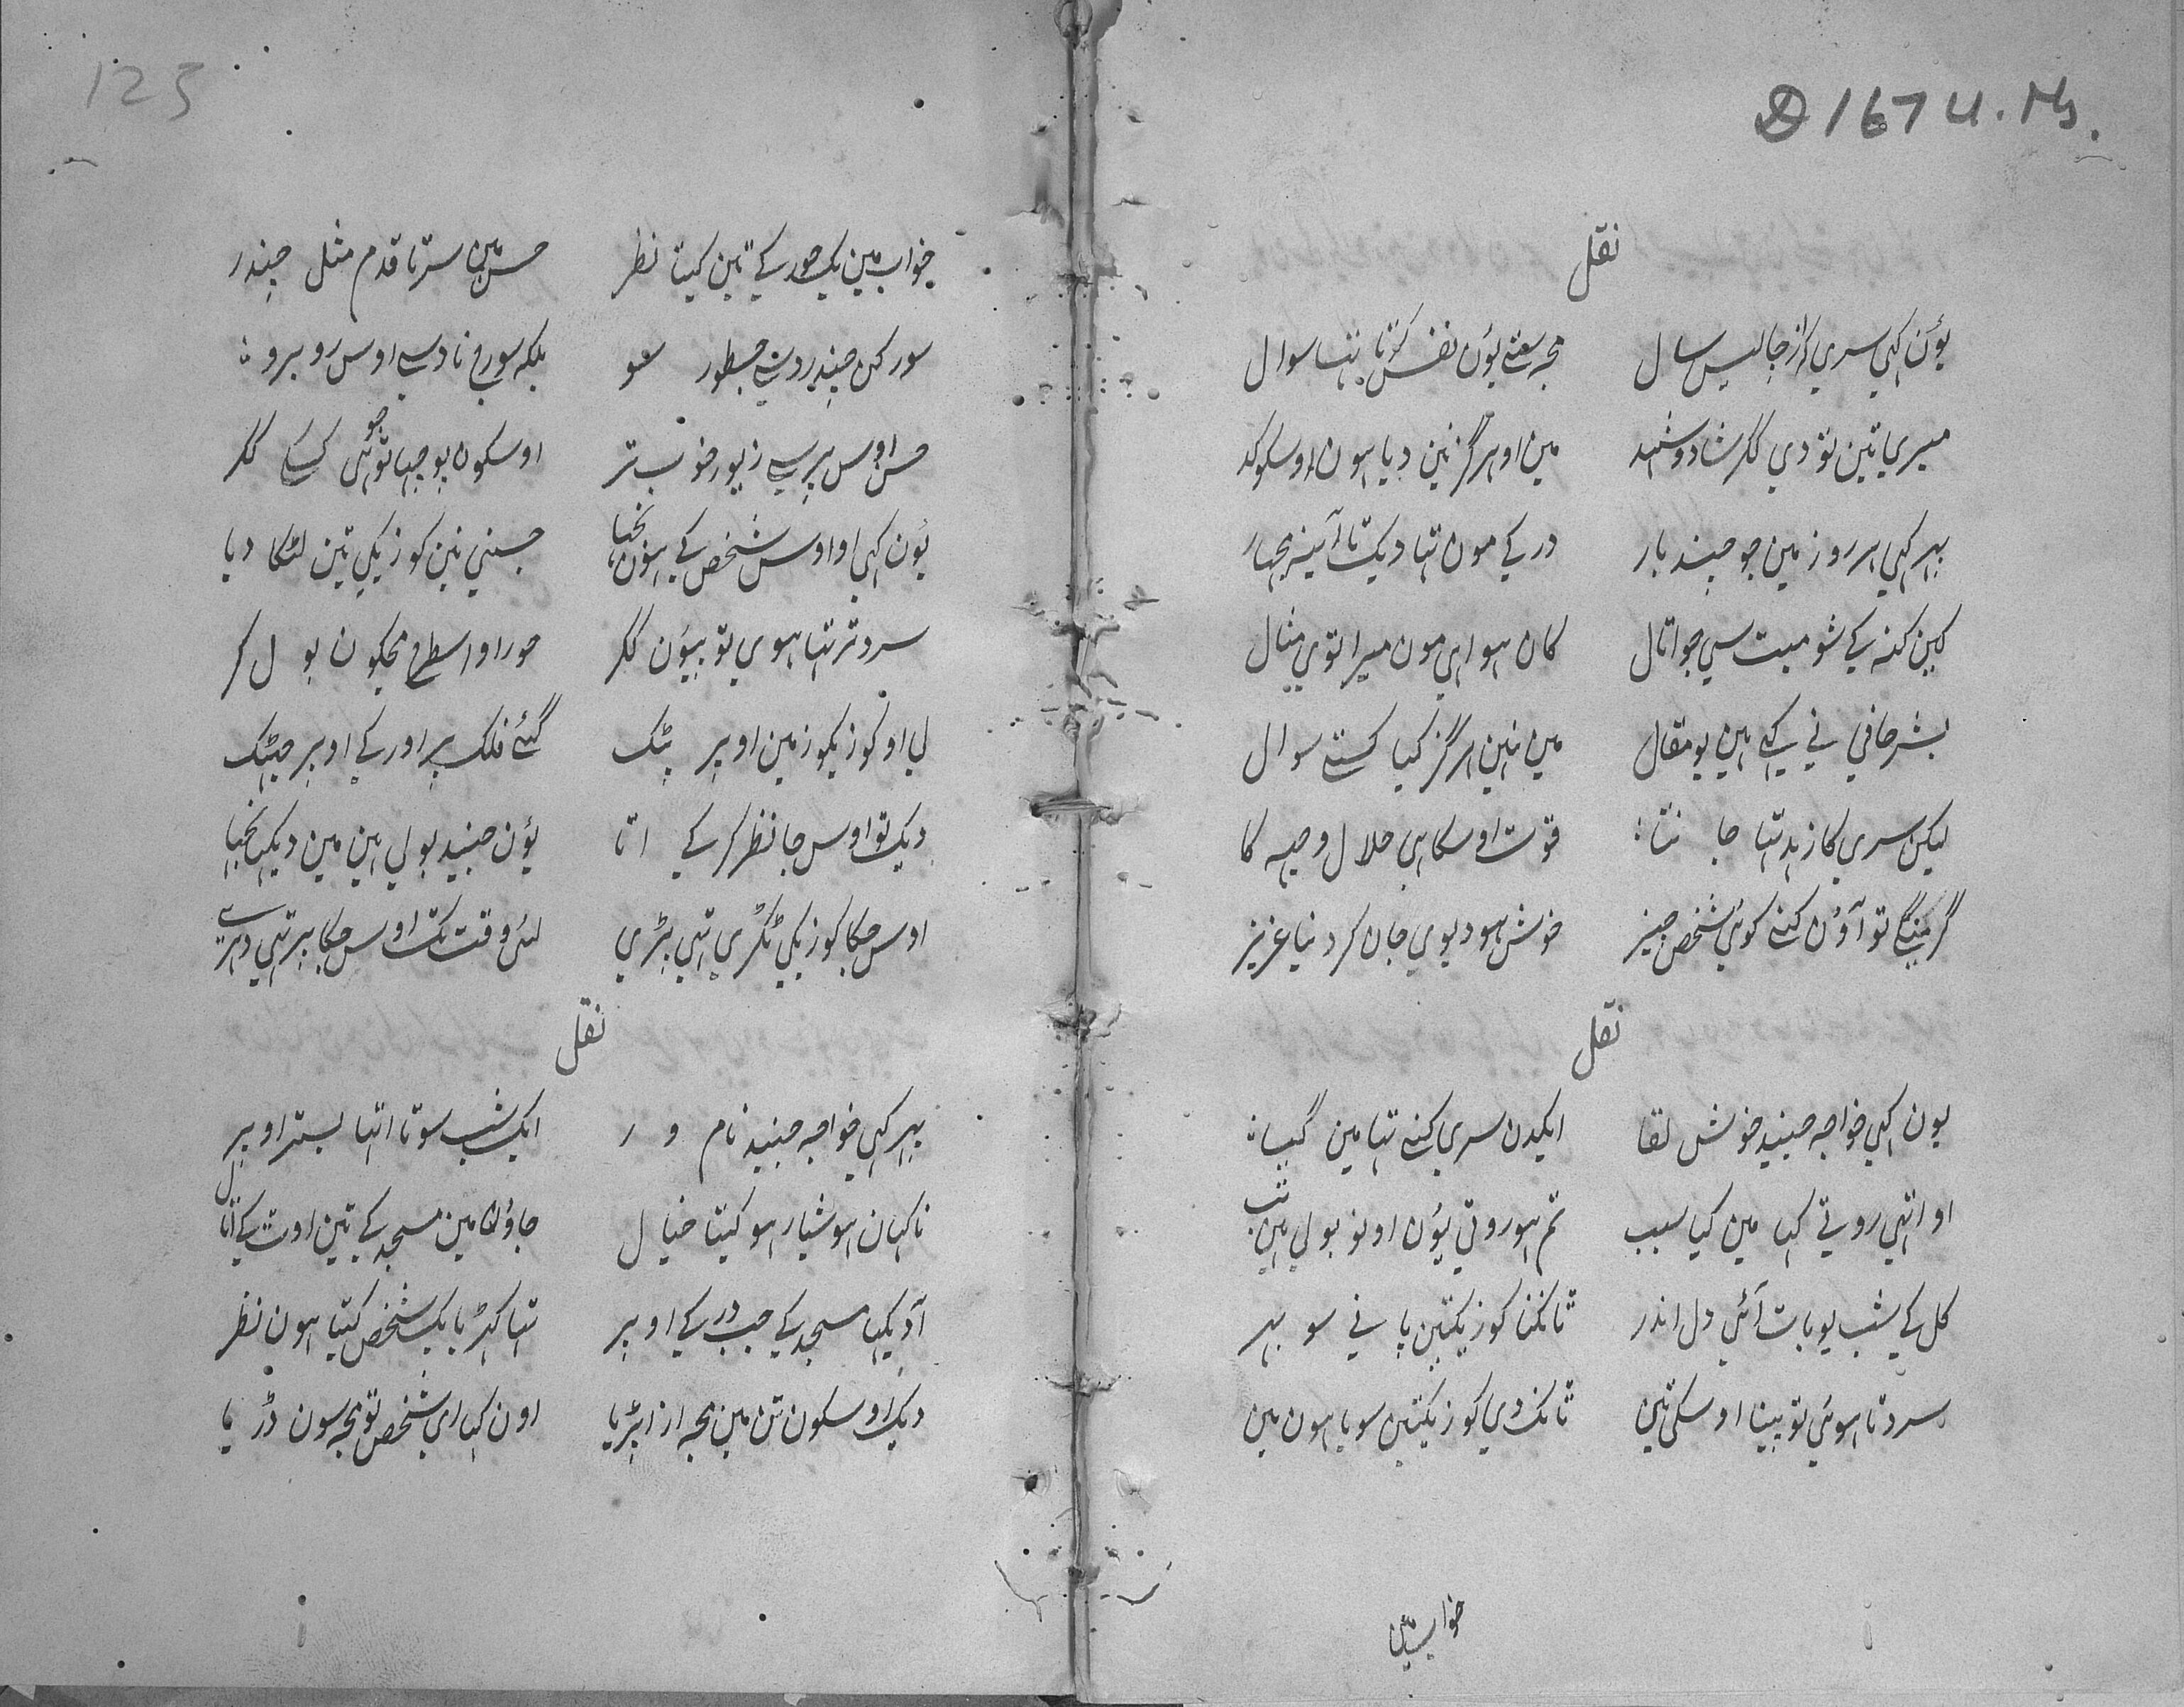 D 1674. Ms.
نقل
یوُن کہی سری کہ از چالیس سال مجہ ستے یوُن نفس کرتا تہا سوال
میری تین تو دی گکر شاد و شہد مین او ہرگز نین دیا ہون اوسکو کد
پہر کہی ہر روز مین جو چند بار در کے مون تہا دیکتا آئینہ مجہار
کین کنہ کے شومیت سی جو اتال کان ہوا ہی مون میرا توی مثال
بشر حافی نے کہے ہین یو مقال مین نین ہرگز کیا کستے سوال
لیکن سری کا زہد تہا جا نتا قوت اوسکا ہی حلال وجہہ کا
گر منگے تو آوُن کنے کوئی شخص چیز خوش ہو دیوی جان کر دنیا عزیز
نقل
یون کہی خواجہ جنید خوش لقا ایکدن سری کنے تہا مین گیا
او اتہی روتے کہا مین کیا سبب تم ہو روتی یوُن اونو بولی ہین تب
کل کے شب یو بات آئی دل اندر ٹانکنا کوزیکتین پانے سو بہر
سرد تا ہوئی تو پینا اوسکی تین ٹانک دی کوزیکتین سویا ہون مین
خواب مین
125
خواب مین یک حور کے تین کیتا نظر حسن مین سر تا قدم مثل چندر
سورکن چندر دسے جسطور سو بلکہ سورج نا دسے اوس روبرو
حسن اوس پر سے زیور خوب تر اوسکون پوچہا تو ہی جو کسکے گکر
یوُن کہی او اوس شخص کے ہون جسنے نین کوزیکی تین لٹکا دیا
سرد تر تہا ہوی تو پیوُن گکر حور او اسطرح مجکون بول کر
لی او کوزیکو زمین اوپر پٹک گئے فلک پر اور کے اوپر چٹک
دیک تو اوس جا نظر کر کے اتا یوُن جنید بولی ہین مین دیکہا
اوس جکا کوزیکی ٹکڑی تہی پڑی لئی وقت تک اوس جکا پر تہی دہرے
نقل
پہر کہی خواجہ جنید نام ور ایک شب سوتا اتہا بستر اوپر
ناکہان ہوشیار ہو کیتا خیال جاوُنا مین مسجد کے تین اوٹ کے اتال
آ دیکہا مسجد کے جب در کے اوپر تہا کہڑیا یک شخص کیتا ہون نظر
دیک اوسکون تن مین مجہ ارزا پڑیا اون کہا ای شخص تو مجہ سون ڈریا